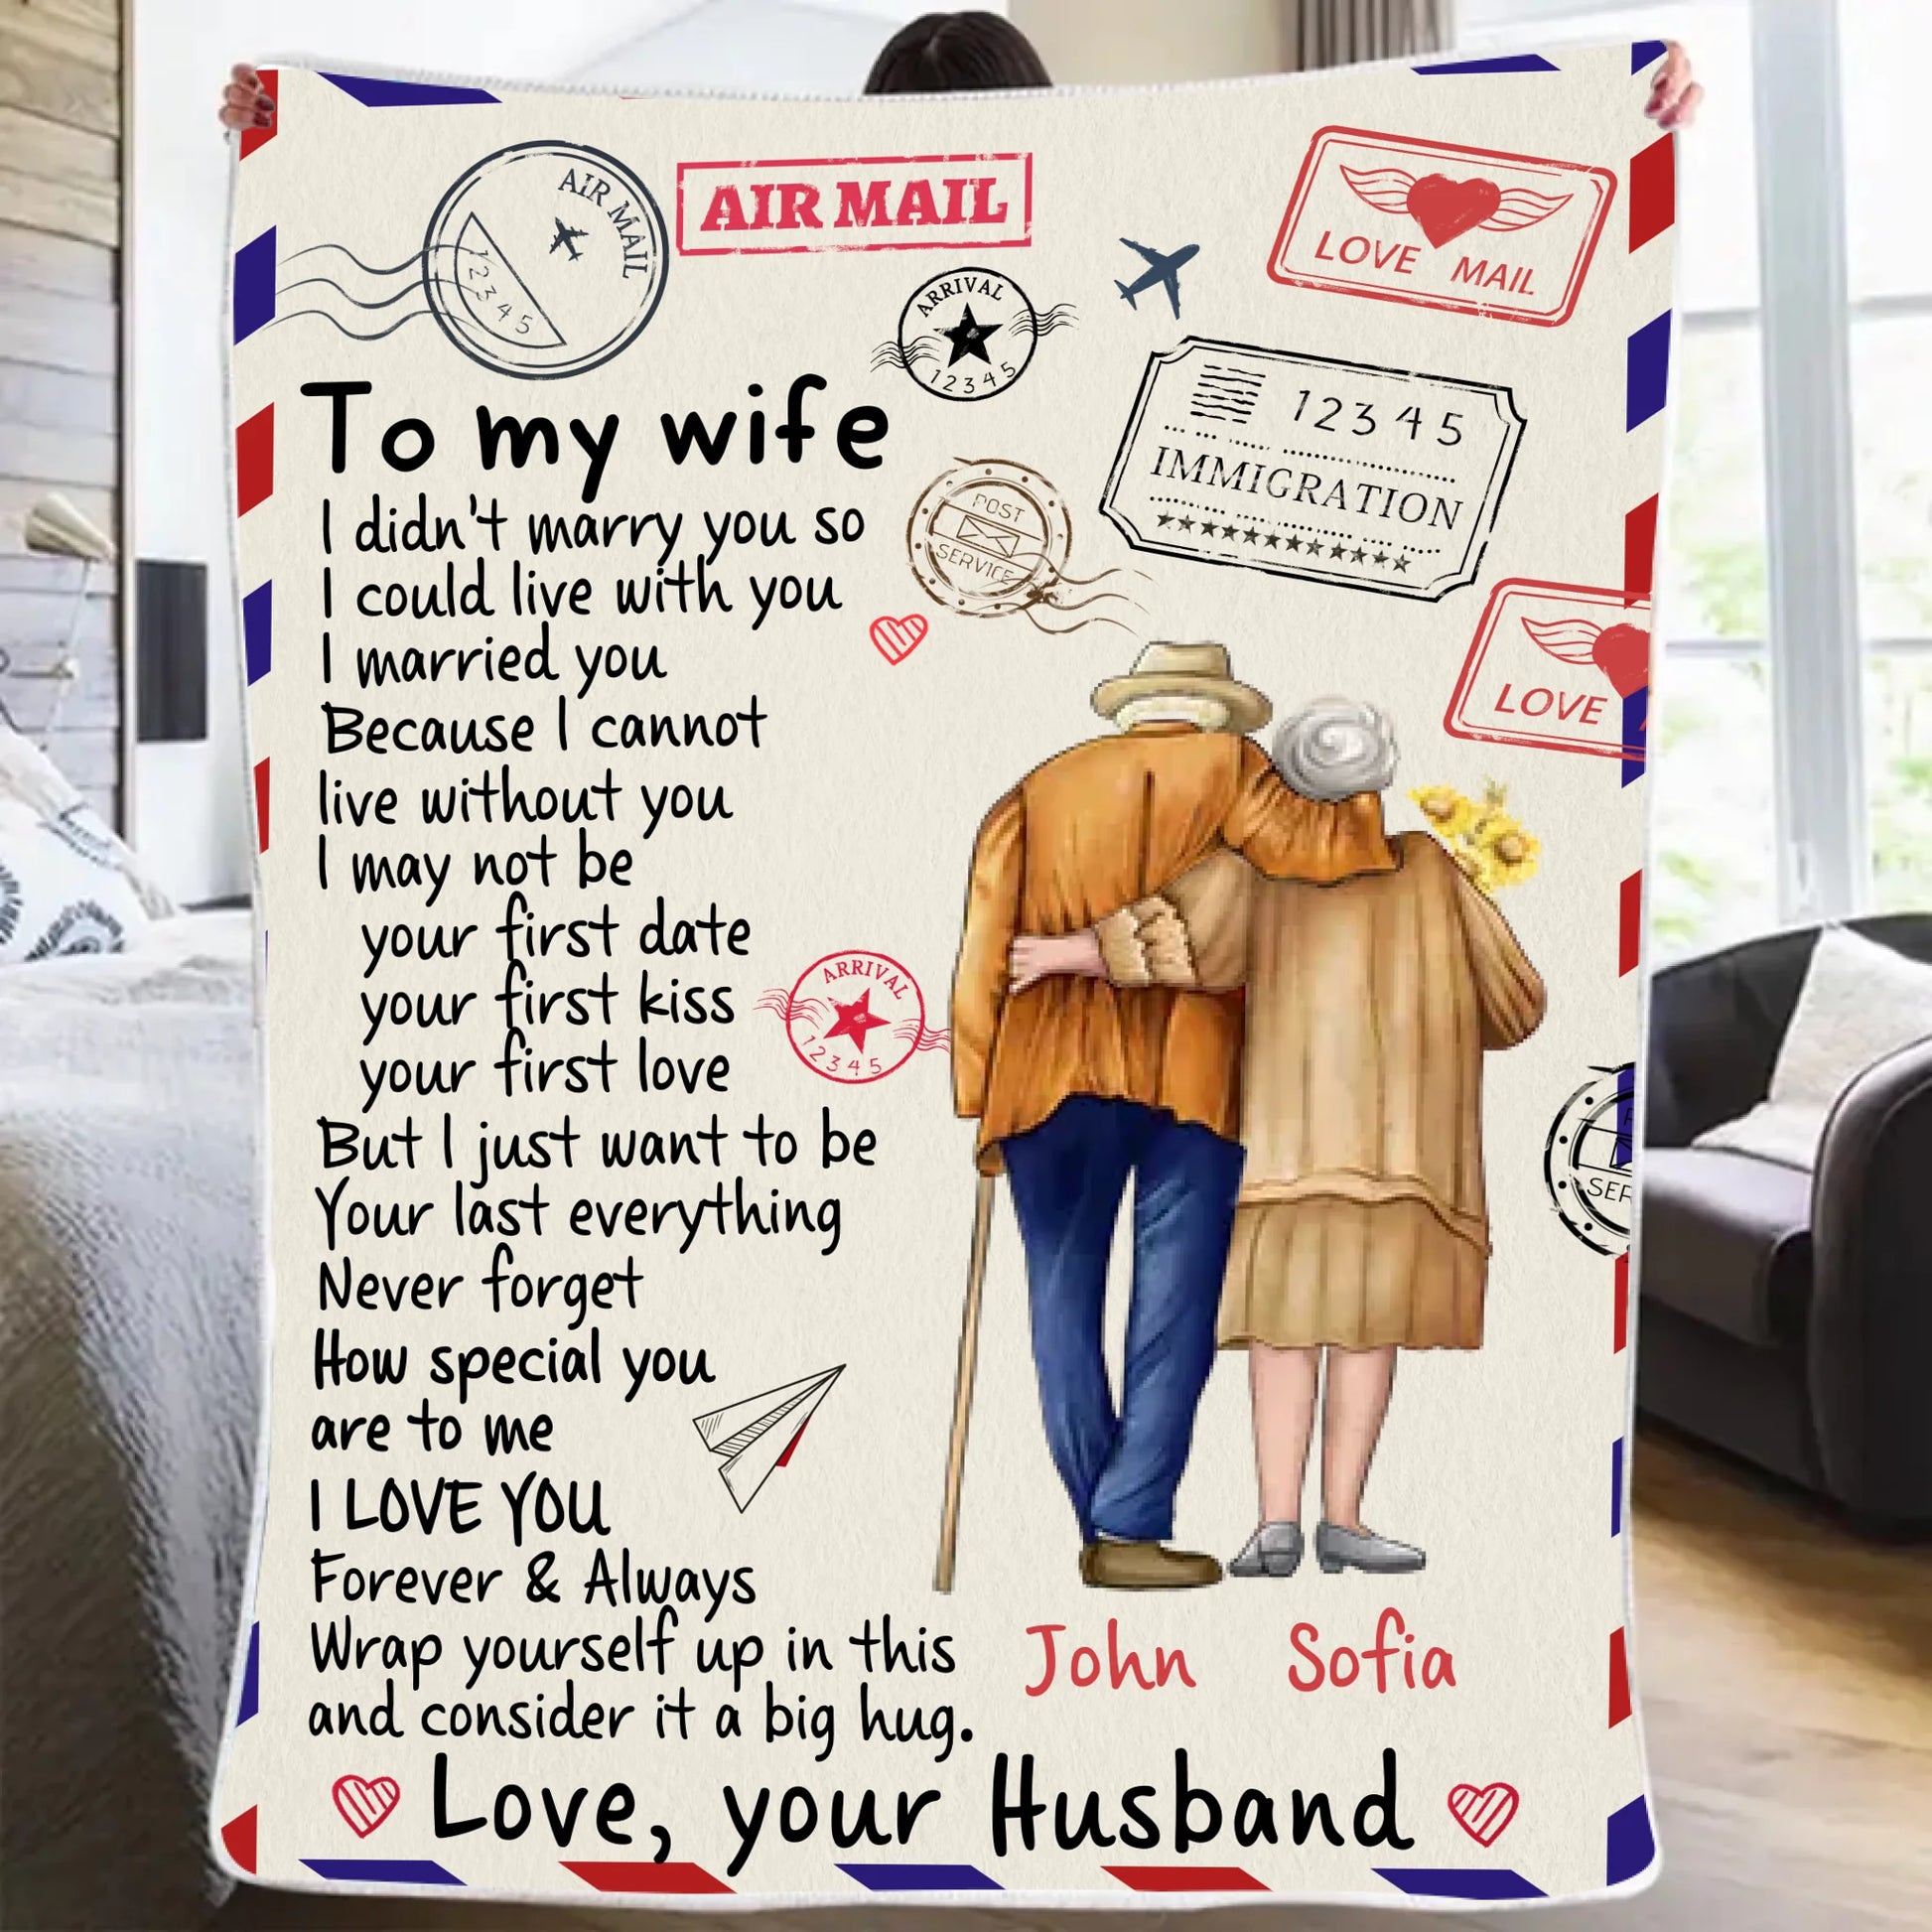 AIR MAIL
12345
AIR MAIL
LOVE MAIL
ARRIVAL
12345
12345
IMMIGRATION
To my wife
I didn't marry you so
I could live with you
I married you
Because I cannot
live without you
I may not be
your first date
your first kiss
your first love
But I just want to be
Your last everything
Never forget
How special you
are to me
I LOVE YOU
Forever & Always
Wrap yourself up in this
and consider it a big hug.
POST
SERVICE
LOVE
ARRIVAL
12345
SER
John Sofia
Love, your Husband